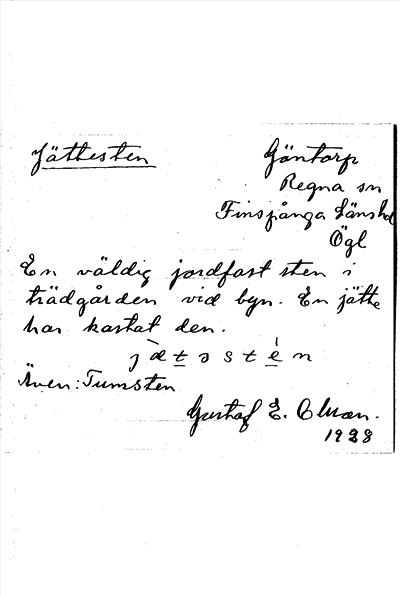 Jättesten
Göntorp
Regna sn
Finspånga länshd
Ögl
En väldig jordfast sten i
trädgården vid bgn. En jätte
har kastat den.
j æ̀ t ə s t é n
Även: Tumsten
Gustaf E. Olsson.
1928